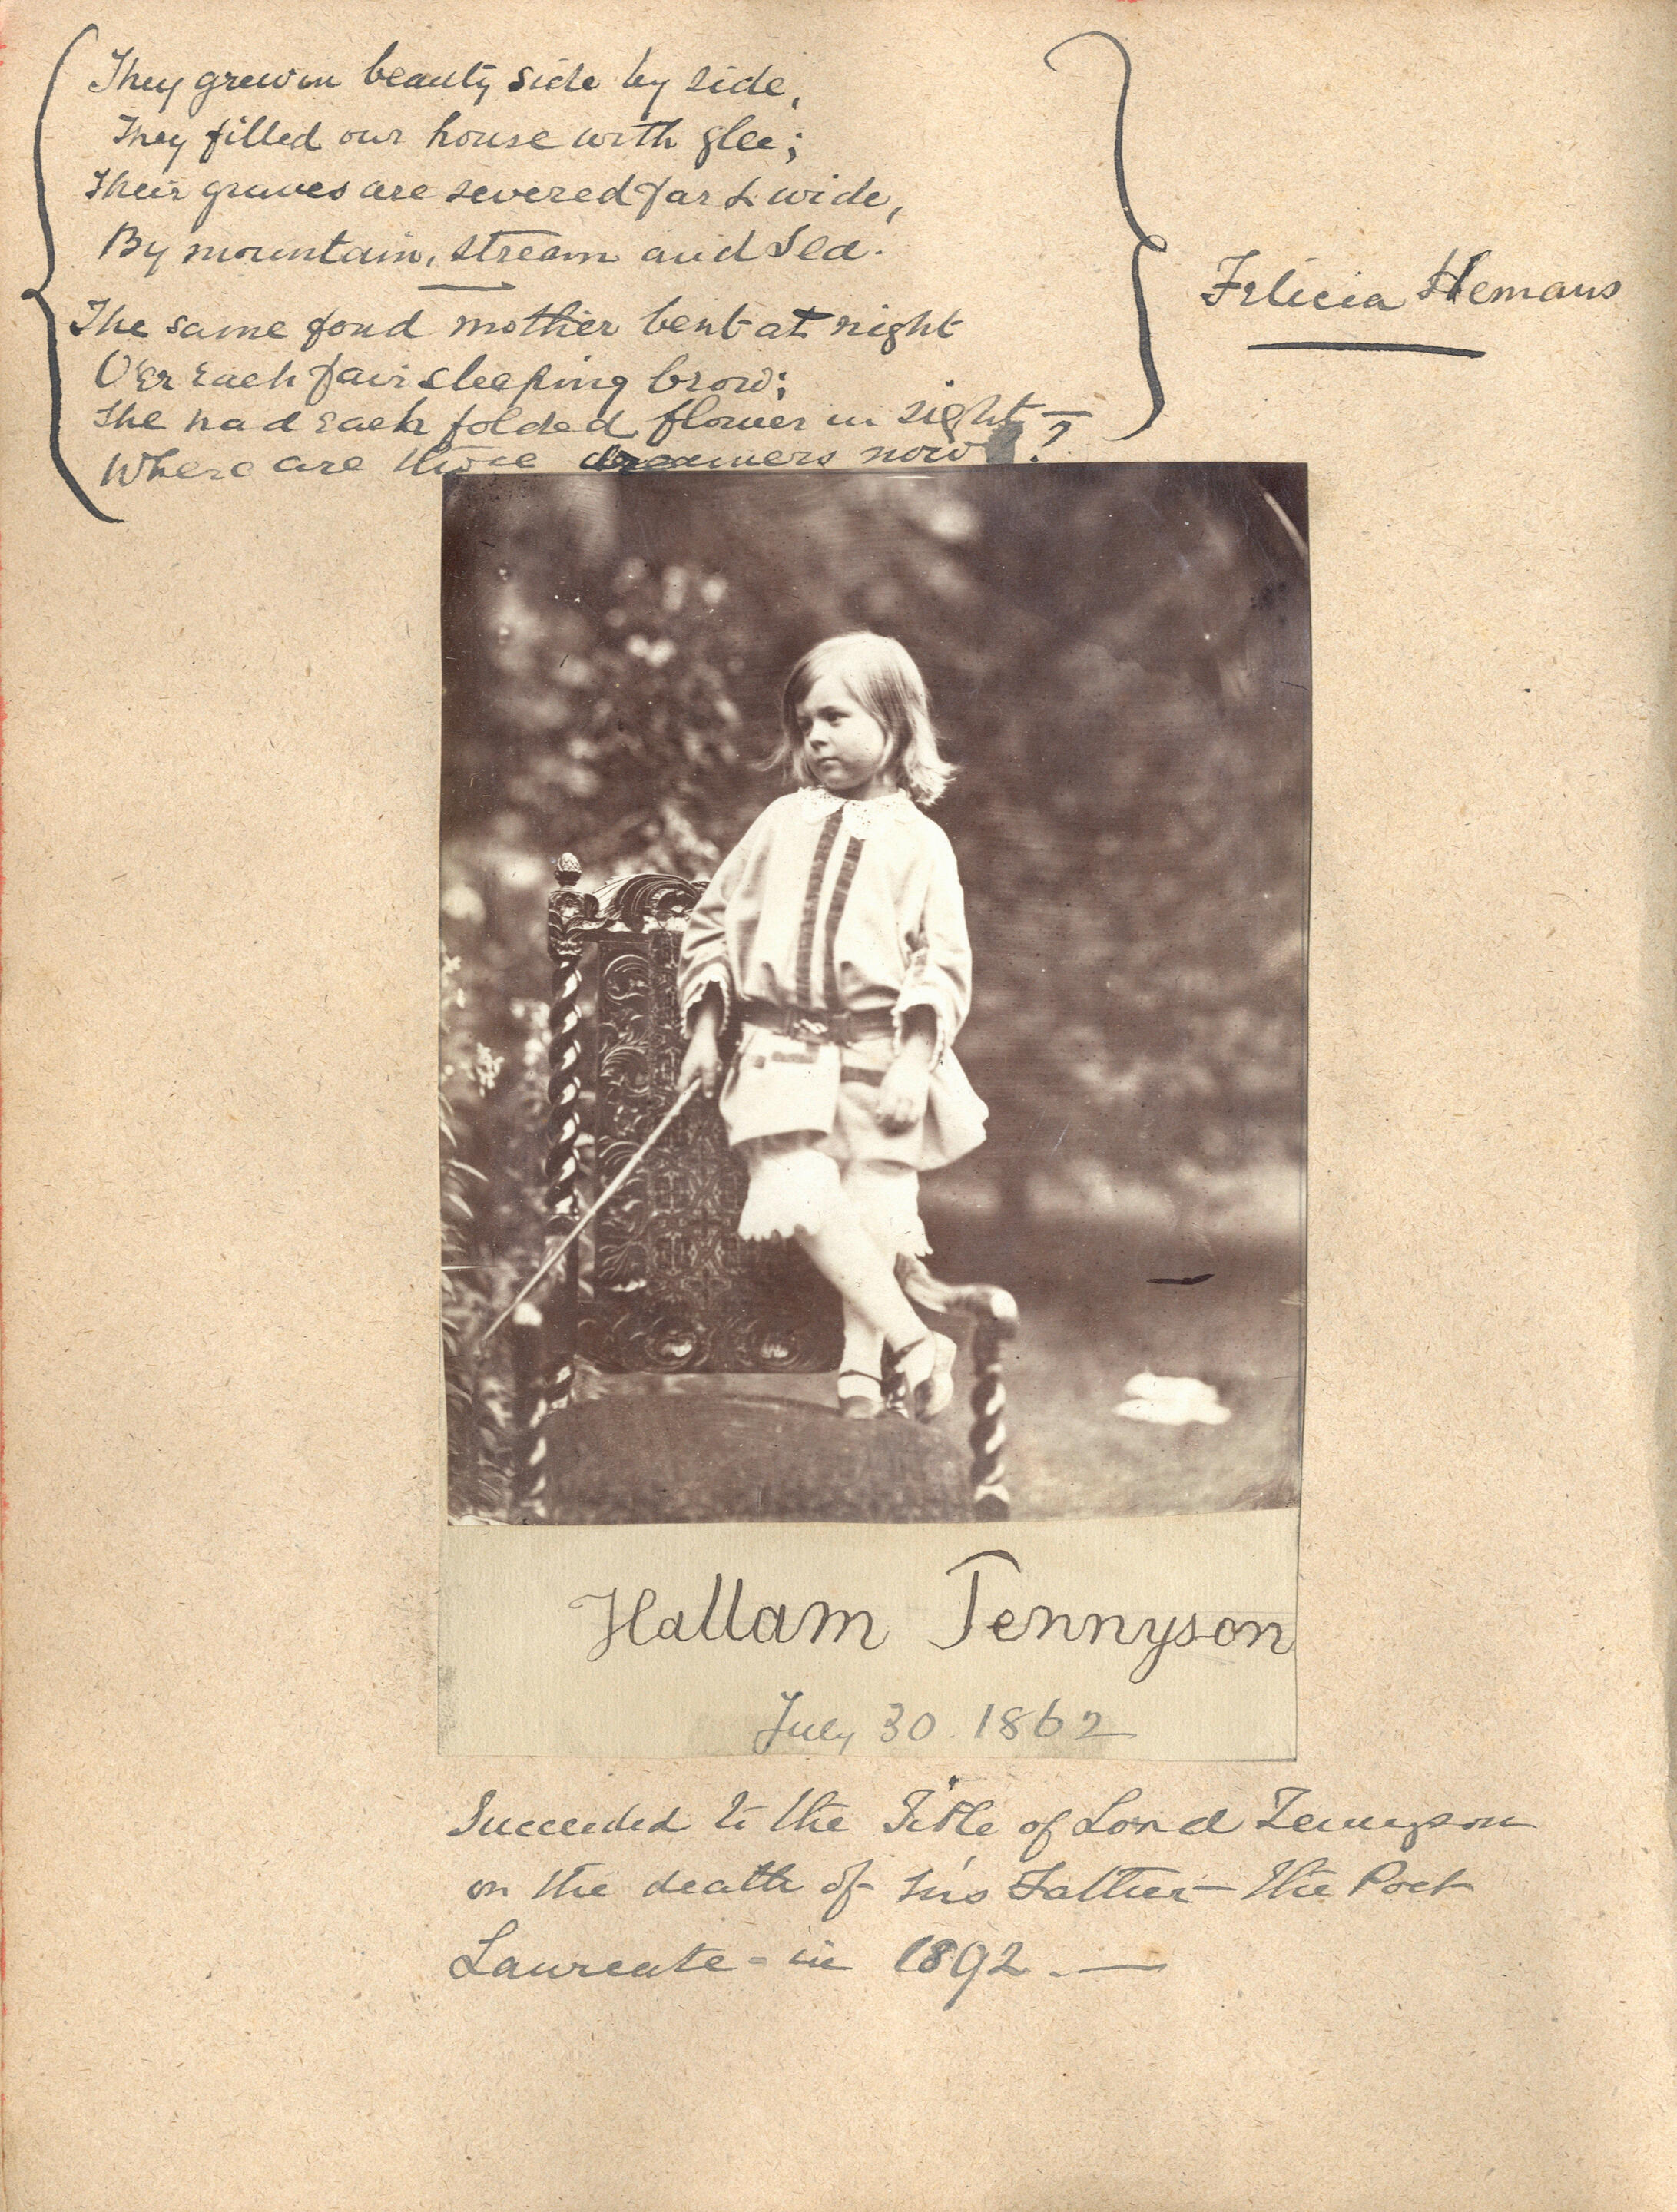 They grew in beauty side by side,
They filled our house with glee;
Their graves are severed far & wide,
By mountain, stream and sea.
The same fond mother bent at night
O'er each fair sleeping brow;
She had each folded flower in sight —
Where are those dreamers now?
Felicia Hemans
Hallam Tennyson
July 30. 1862
Succeeded to the Title of Lord Tennyson
on the death of his Father — the Poet
Laureate - in 1892. —